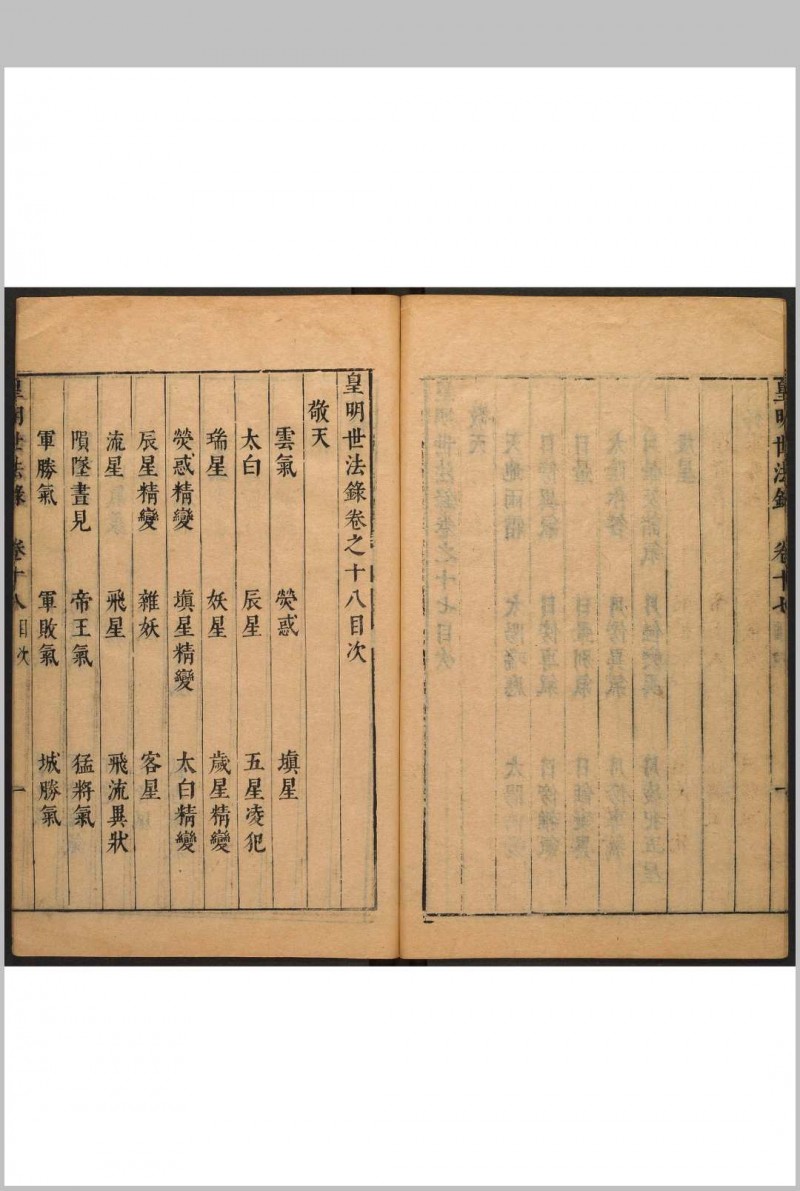 皇明世法錄 卷十七
皇明世法錄卷之十八目次
敬天
雲氣 熒惑 塡星
太白 辰星 五星凌犯
瑞星 妖星 歲星精變
熒惑精變 塡星精變 太白精變
辰星精變 雜妖 客星
流星 飛星 飛流異狀
隕墜晝見 帝王氣 猛將氣
軍勝氣 軍敗氣 城勝氣
皇明世法錄 卷十八目次 一